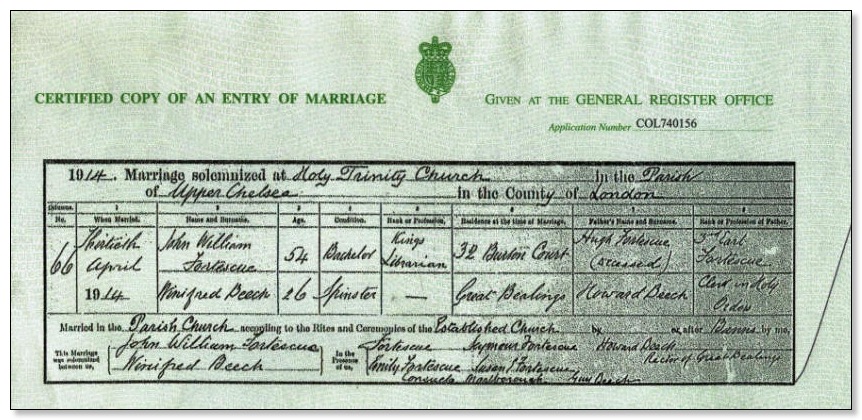 CERTIFIED COPY OF AN ENTRY OF MARRIAGE
GIVEN AT THE GENERAL REGISTER OFFICE
Application Number COL740156
1914. Marriage solemnized at Holy Trinity Church in the Parish
of Upper Chelsea in the County of London
1 2 3 4 5 6 7 8
No. When Married. Name and Surname. Age. Condition. Rank or Profession. Residence at the time of Marriage. Father's Name and Surname. Rank or Profession of Father.
66 Thirtieth April 1914
John William Fortescue 54 Bachelor Kings Librarian 32 Burton Court Hugh Fortescue (deceased) 3rd Earl Fortescue
Winifred Beech 26 Spinster — Great Bealings Howard Beech Clerk in Holy Orders
Married in the Parish Church according to the Rites and Ceremonies of the Established Church by or after Banns by me,
This Marriage was solemnized between us,
John William Fortescue
Winifred Beech
In the Presence of us,
Fortescue Seymour Fortescue
Emily Fortescue Susan J Fortescue
Marlborough Guy Beech
Howard Beech
Rector of Great Bealings